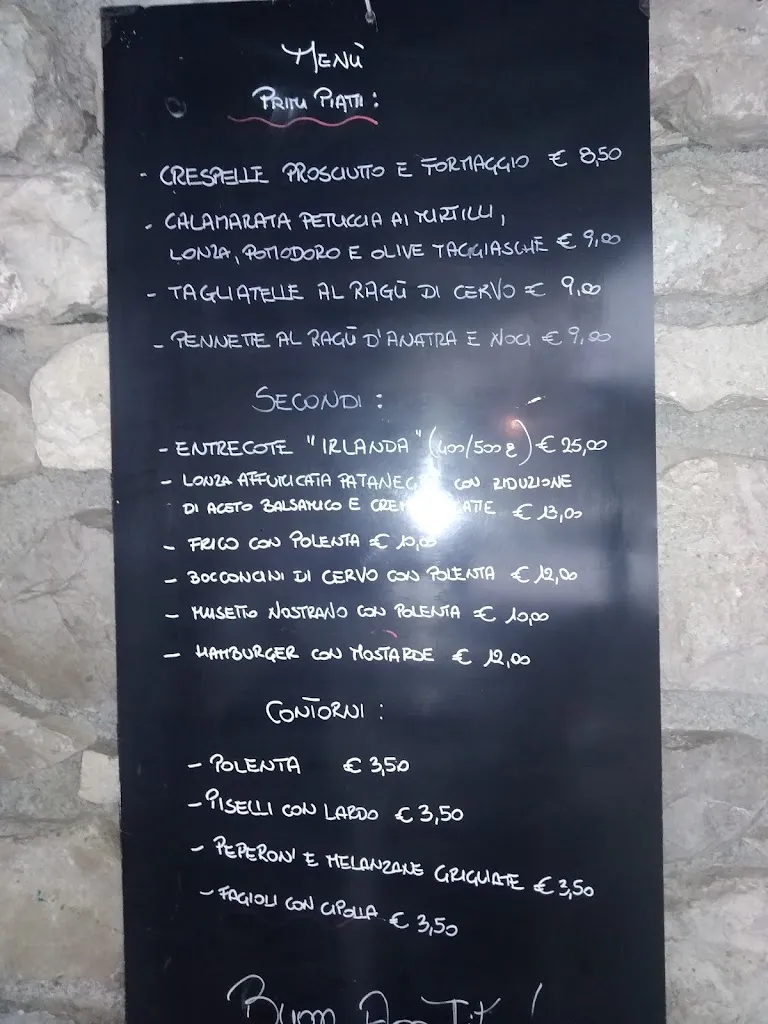 MENÙ
PRIMI PIATTI:
- CRESPELLE PROSCIUTTO E FORMAGGIO € 8,50
- CALAMARATA PETUCCIA AI MIRTILLI,
LONZA, POMODORO E OLIVE TAGGIASCHE € 9,00
- TAGLIATELLE AL RAGÙ DI CERVO € 9,00
- PENNETTE AL RAGÙ D'ANATRA E NOCI € 9,00
SECONDI:
- ENTRECOTE "IRLANDA" (400/500 g) € 25,00
- LONZA AFFUMICATA CON RIDUZIONE
DI ACETO BALSAMICO E € 13,00
- FRICO CON POLENTA € 10,00
- BOCCONCINI DI CERVO CON POLENTA € 12,00
- MUSETTO NOSTRANO CON POLENTA € 10,00
- HAMBURGER CON MOSTARDE € 12,00
CONTORNI:
- POLENTA € 3,50
- PISELLI CON LARDO € 3,50
- PEPERONI E MELANZANE GRIGLIATE € 3,50
- FAGIOLI CON CIPOLLA € 3,50
BUON